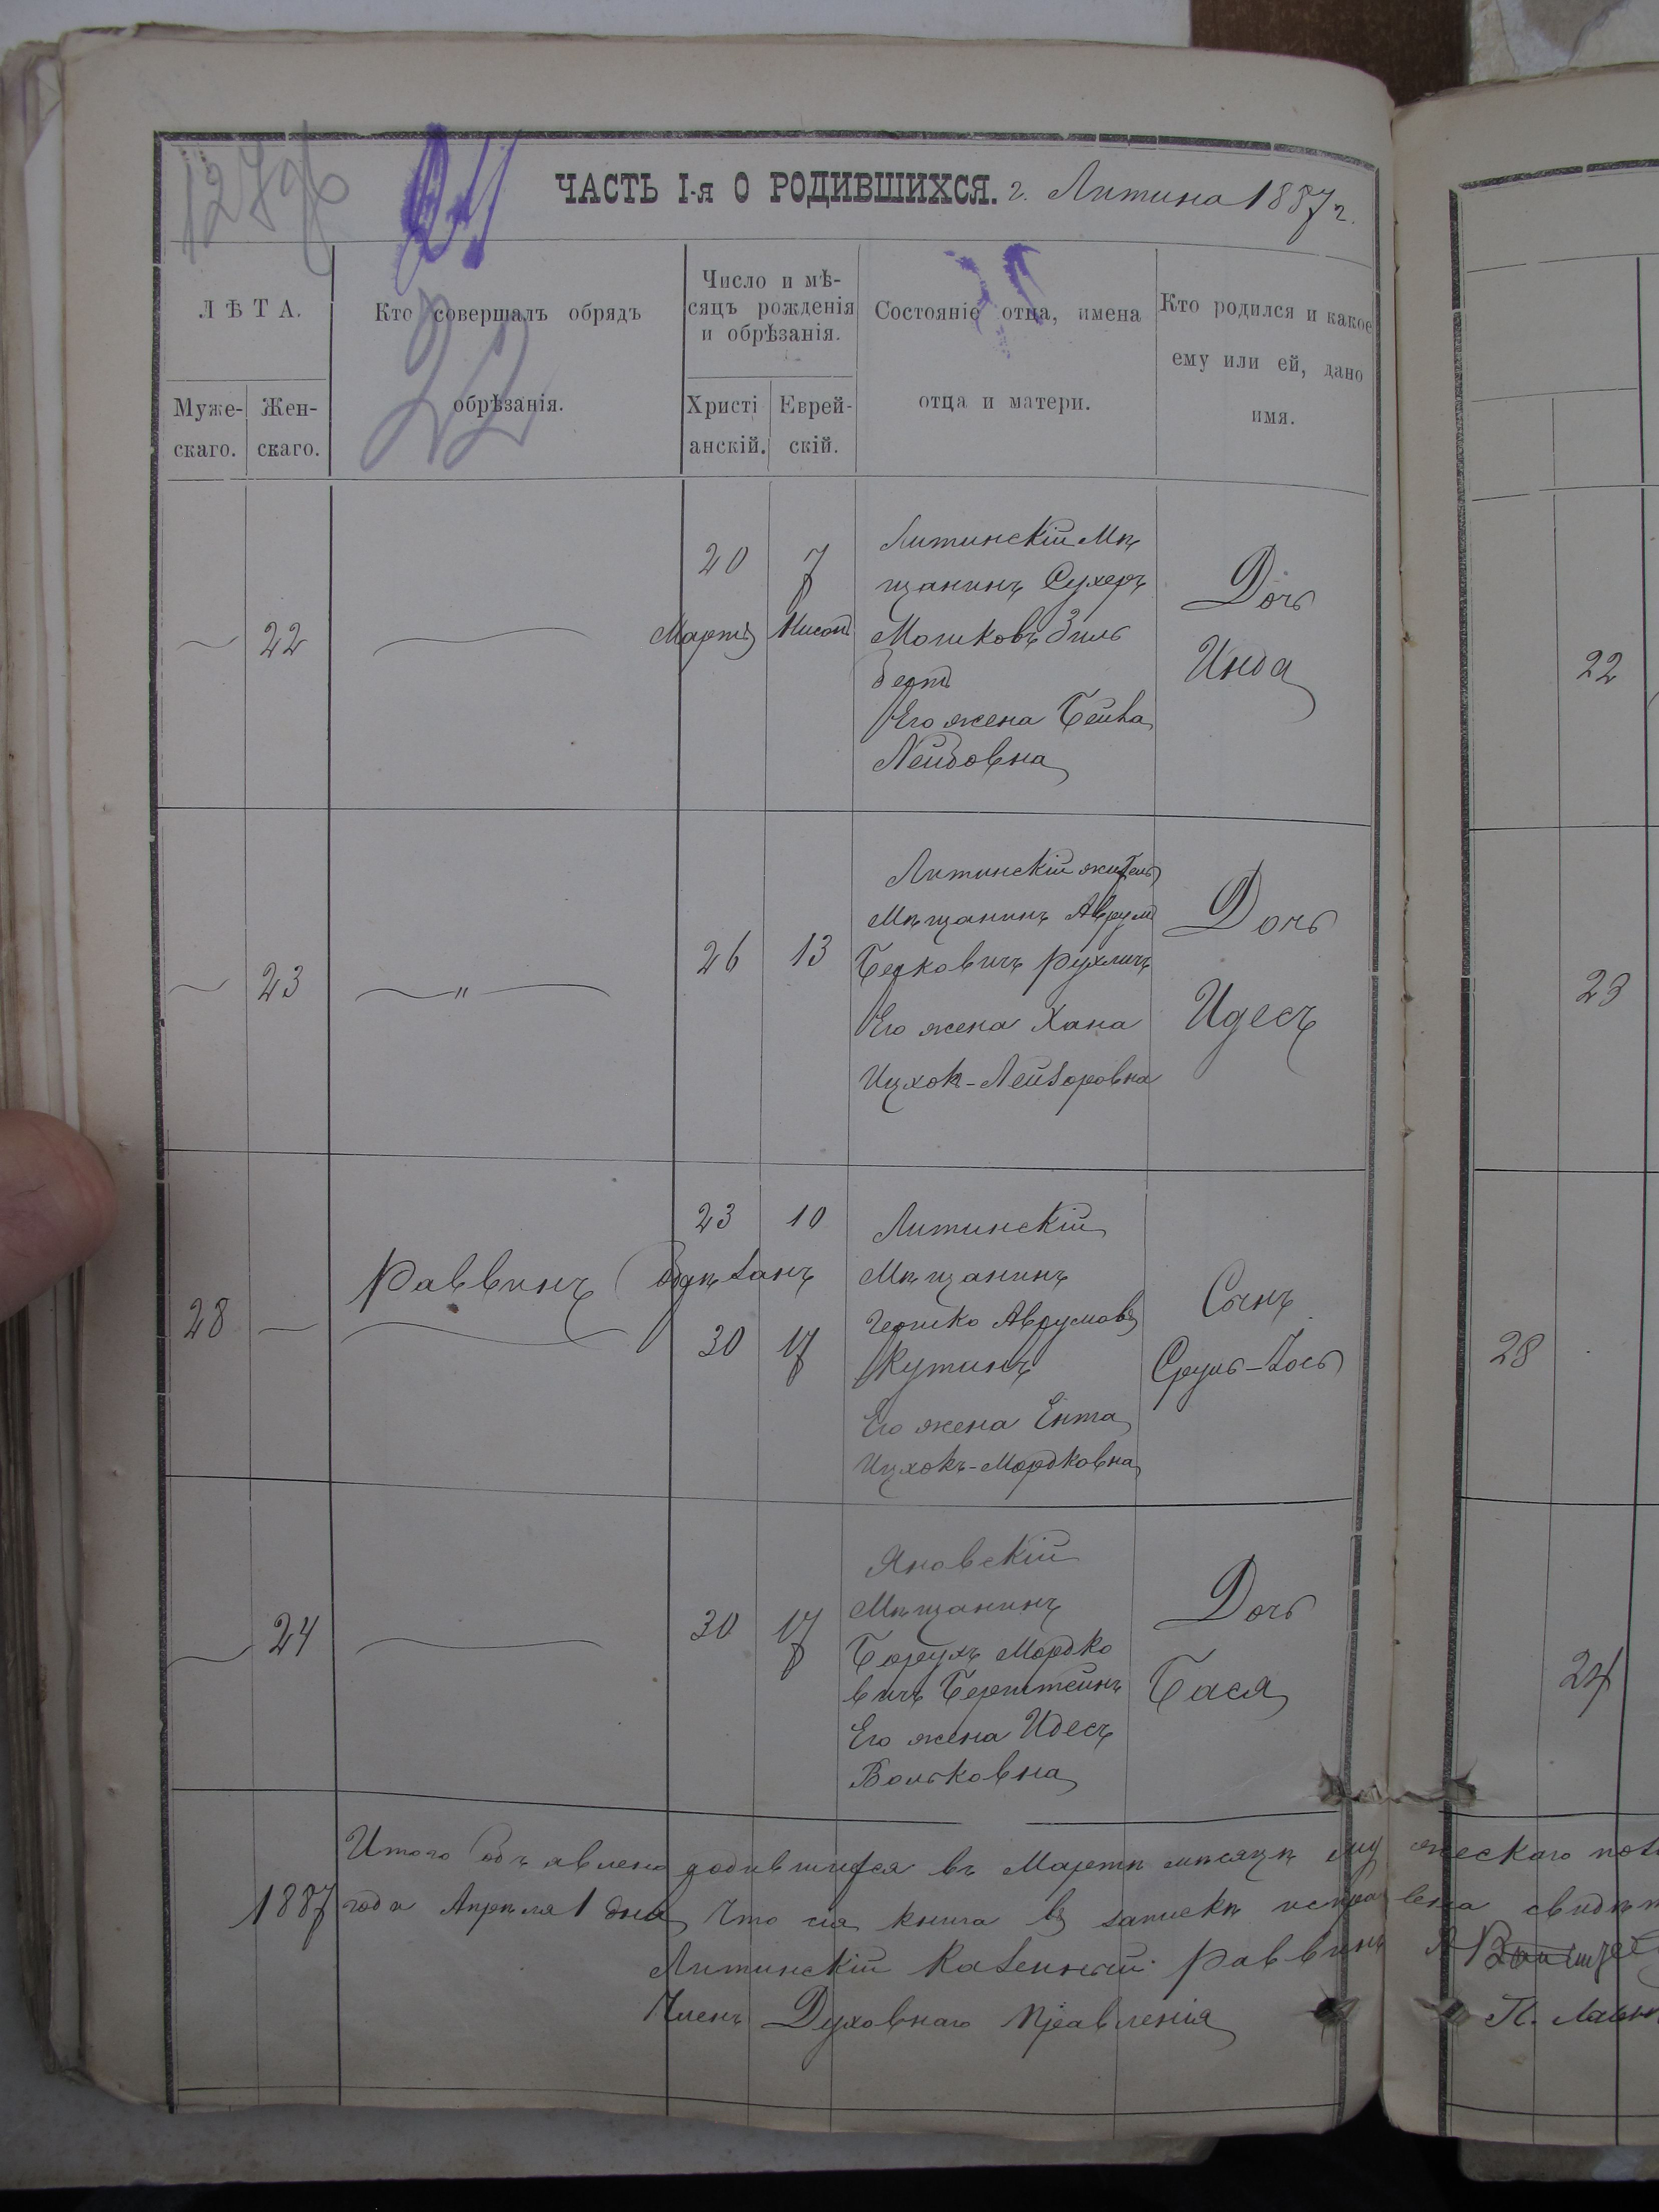 127 об
22
ЧАСТЬ I-я О РОДИВШИХСЯ. г. Литина 1887 г.
ЛѢТА.
Муже-
скаго.
Жен-
скаго.
Кто совершалъ обрядъ
обрѣзанія.
Число и мѣ-
сяцъ рожденія
и обрѣзанія.
Христі
анскій.
Еврей-
скій.
Состояніе отца, имена
отца и матери.
Кто родился и какое
ему или ей, дано
имя.
22
20
Марта
7
Нисонъ
Литинскій Мѣ
щанинъ Сухеръ
Мошковъ Зиль
бертъ
Его жена Бейла
Лейбовна
Дочь
Инда
22
23
"
26
13
Литинскій житель
Мѣщанинъ Аврумъ
Берковичъ Рухличъ
Его жена Хана
Ицхок-Лейзоровна
Дочь
Идесъ
23
28
Раввинъ
23
10
Обрѣзанъ
30
17
Литинскій
Мѣщанинъ
Гершко Аврумовъ
Кутинъ
Его жена Ента
Ицхокъ-Мордковна
Сынъ
Сруль-Іось
28
24
30
17
Яновскій
Мѣщанинъ
Борухъ Мордко
вичъ Беренштейнъ
Его жена Идесъ
Вольковна
Дочь
Бася
24
Итого объявлено родившихся въ Мартѣ мѣсяцѣ мужескаго пола
1887 года Апрѣля 1 дня, Что сія книга въ запискѣ исправлена свидѣт
Литинскій Казенный Раввинъ
Членъ Духовнаго Правленія